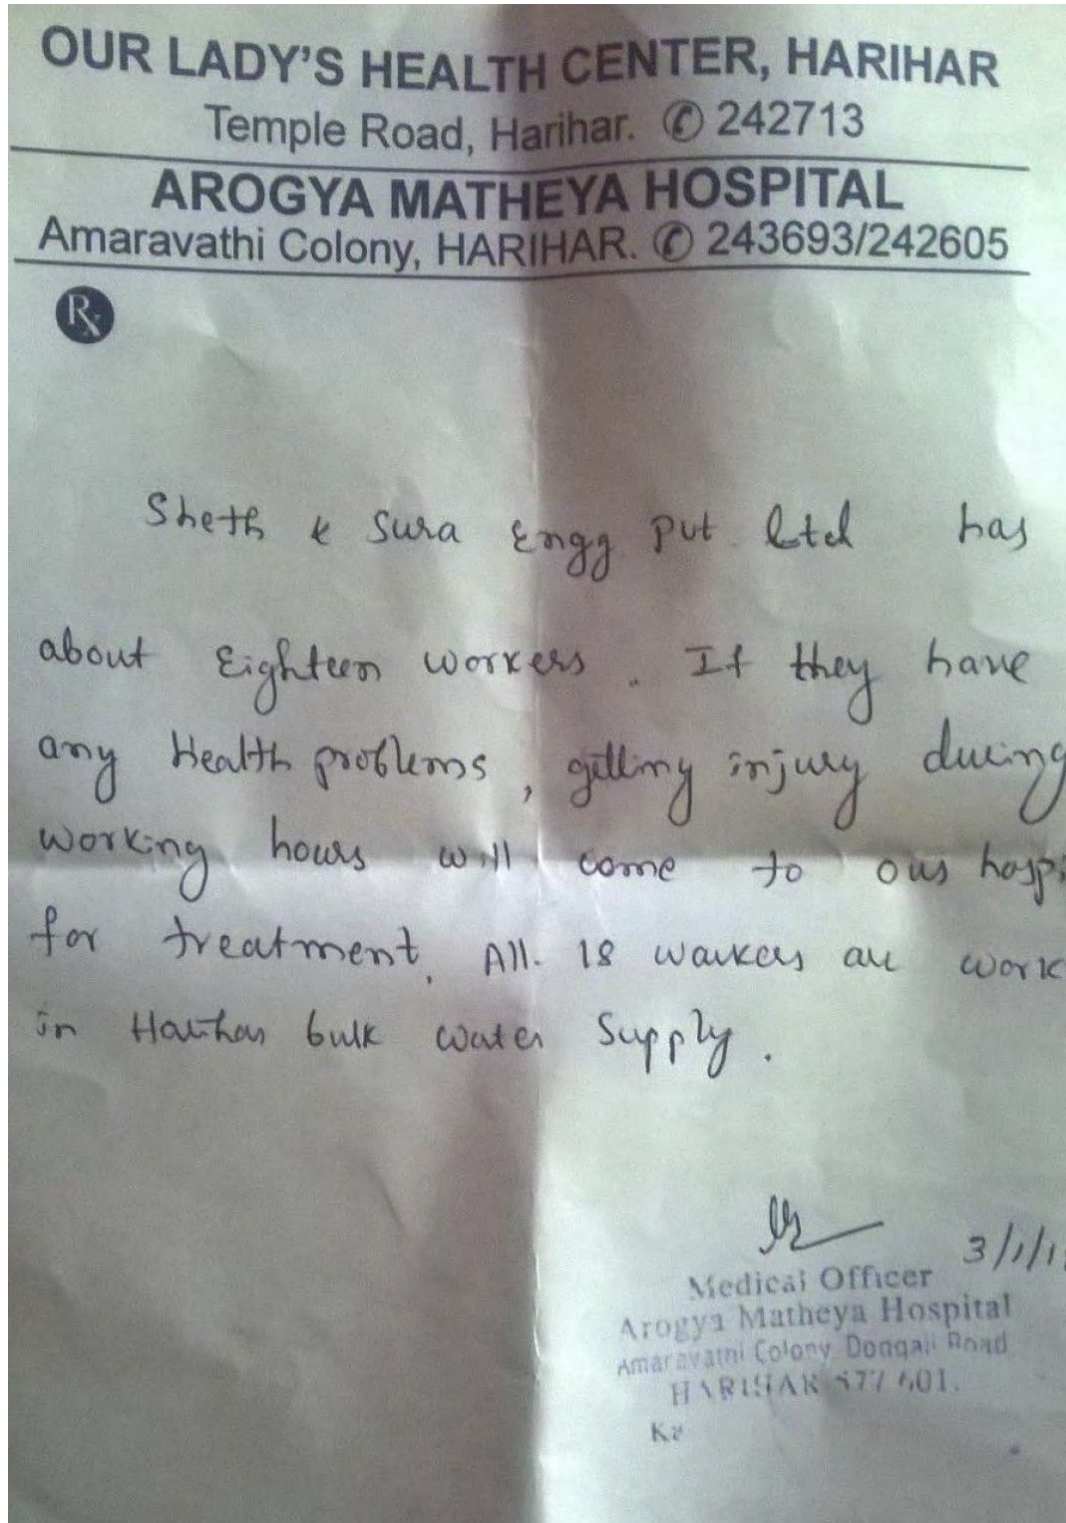 OUR LADY'S HEALTH CENTER, HARIHAR
Temple Road, Harihar. ✆ 242713
AROGYA MATHEYA HOSPITAL
Amaravathi Colony, HARIHAR. ✆ 243693/242605
Rx
Sheth & Sura Engg Pvt Ltd has
about Eighteen workers. If they have
any Health problems, getting injury during
working hours will come to our hospi
for treatment. All 18 workers are work
in Harihar bulk water Supply.
3/1/1
Medical Officer
Arogya Matheya Hospital
Amaravathi Colony Dongali Road
HARIHAR 577 601.